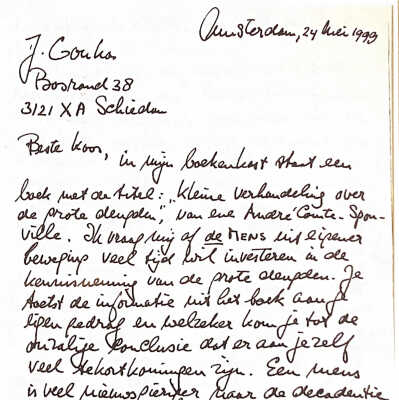 Amsterdam, 24 Mei 1999
J. Goukos
Bosrand 38
3121 XA Schiedam
Beste Koos,
in mijn boekenkast staat een
boek met de titel: "Kleine verhandeling over
de grote deugden", van ene André Comte-Spon-
ville. Ik vraag mij af de MENS uit eigener
beweging veel tijd wil investeren in de
kennisneming van de grote deugden. Je
toetst de informatie uit het boek aan je
eigen gedrag en welzeker kom je tot de
onzalige conclusie dat er aan jezelf
veel tekortkomingen zijn. Een mens
is veel nieuwsgieriger naar de decadentie